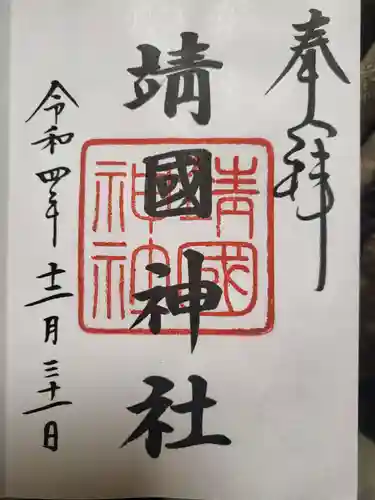 奉拝
靖國神社
靖國
神社
令和四年十二月三十一日